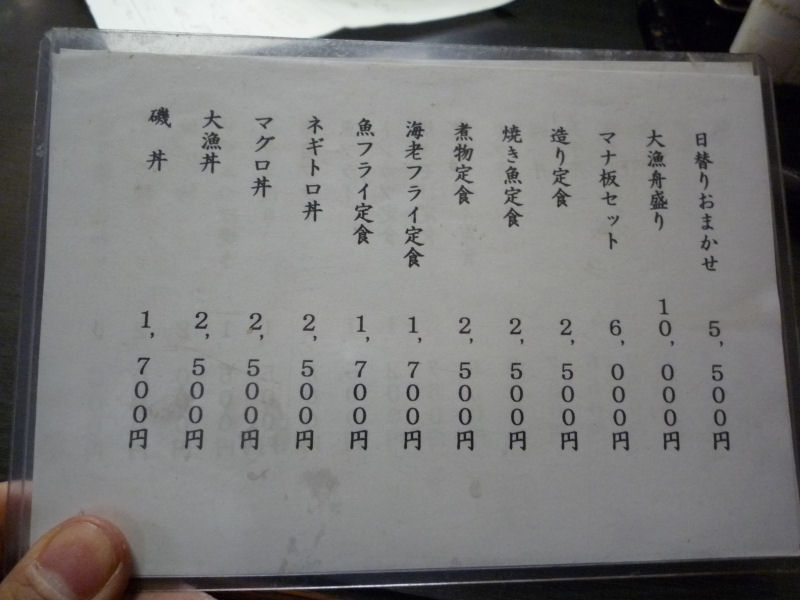 日替りおまかせ 5,500円
大漁舟盛り 10,000円
マナ板セット 6,000円
造り定食 2,500円
焼き魚定食 2,500円
煮物定食 2,500円
海老フライ定食 1,700円
魚フライ定食 1,700円
ネギトロ丼 2,500円
マグロ丼 2,500円
大漁丼 2,500円
磯丼 1,700円